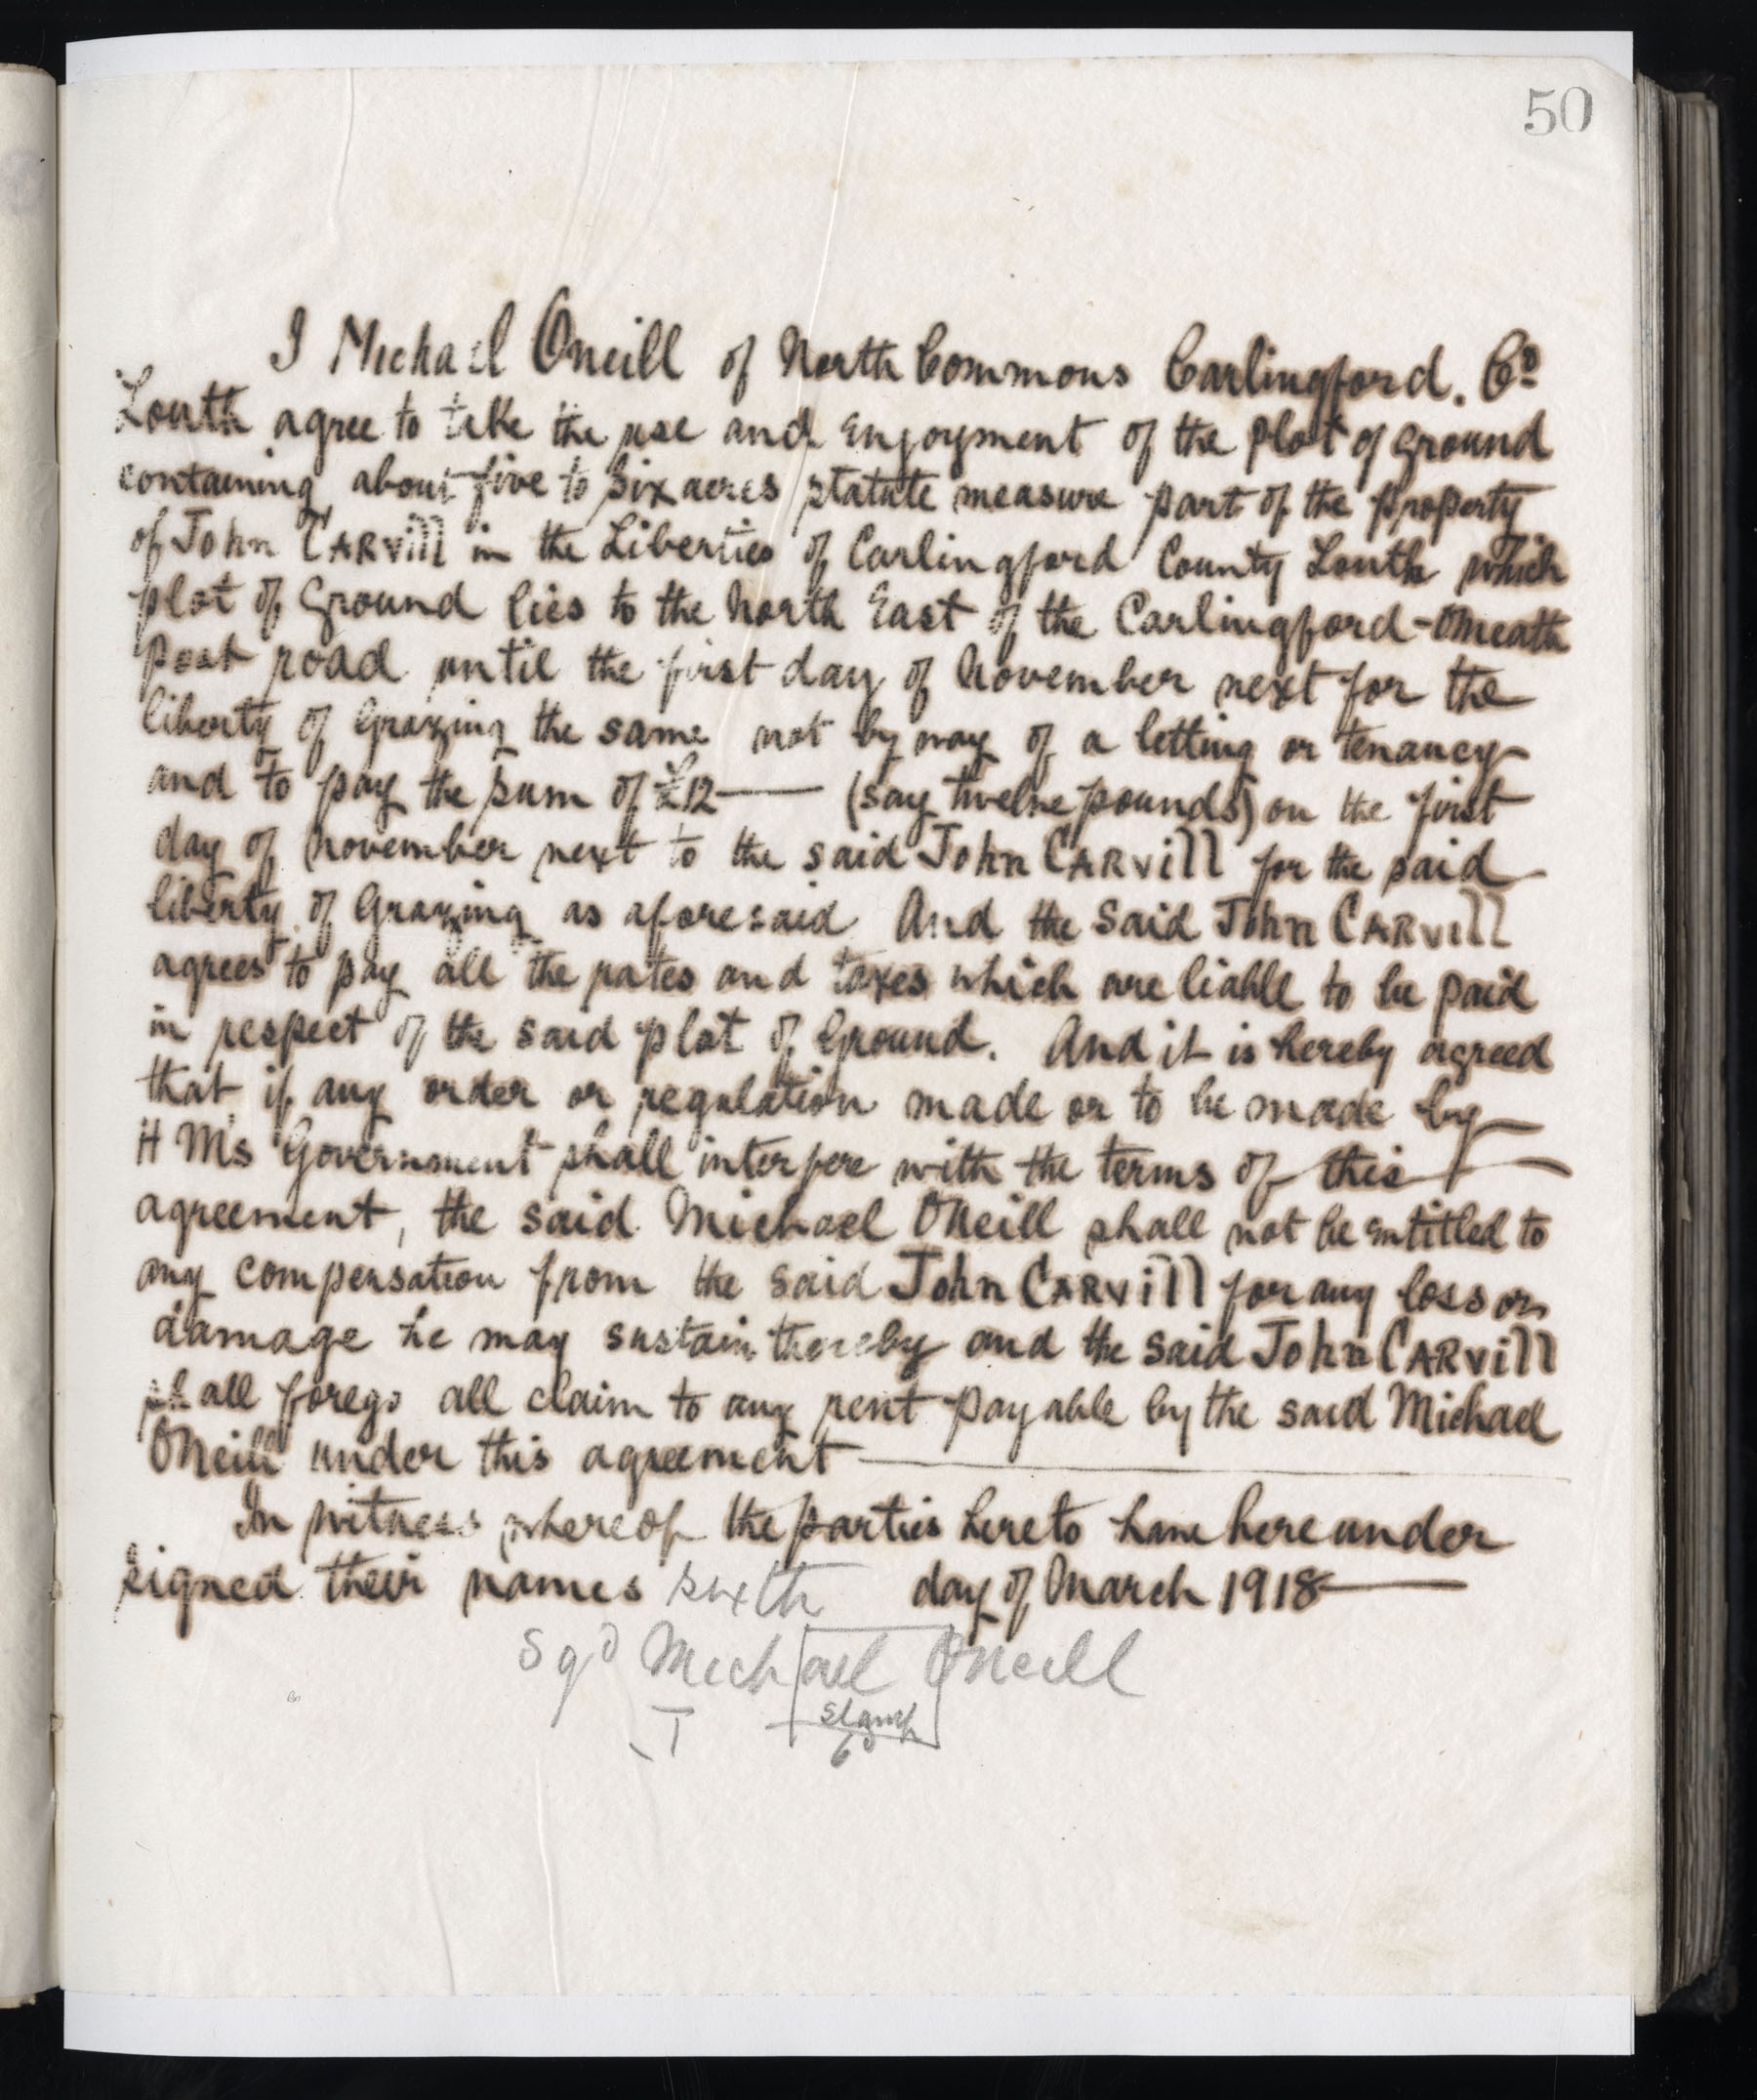 50
I Michael Oneill of North Commons Carlingford. Co
Louth agree to take the use and enjoyment of the plot of ground
containing about five to six acres statute measure part of the property
of John Carvill in the Liberties of Carlingford County Louth which
plot of Ground lies to the North East of the Carlingford-Omeath
Post road until the first day of November next for the
liberty of Grazing the same not by way of a letting or tenancy
and to pay the sum of £12— (say twelve pounds) on the first
day of November next to the said John Carvill for the said
liberty of Grazing as aforesaid And the said John Carvill
agrees to pay all the rates and taxes which are liable to be paid
in respect of the said plot of Ground. And it is hereby agreed
that if any order or regulation made or to be made by
H M's Government shall interfere with the terms of this
agreement, the said Michael ONeill shall not be entitled to
any compensation from the said John Carvill for any loss or
damage he may sustain thereby and the said John Carvill
shall forego all claim to any rent payable by the said Michael
ONeill under this agreement —
In witness whereof the parties hereto have hereunder
signed their names sixth day of March 1918—
Sgd Michael ONeill
Stamp
6d